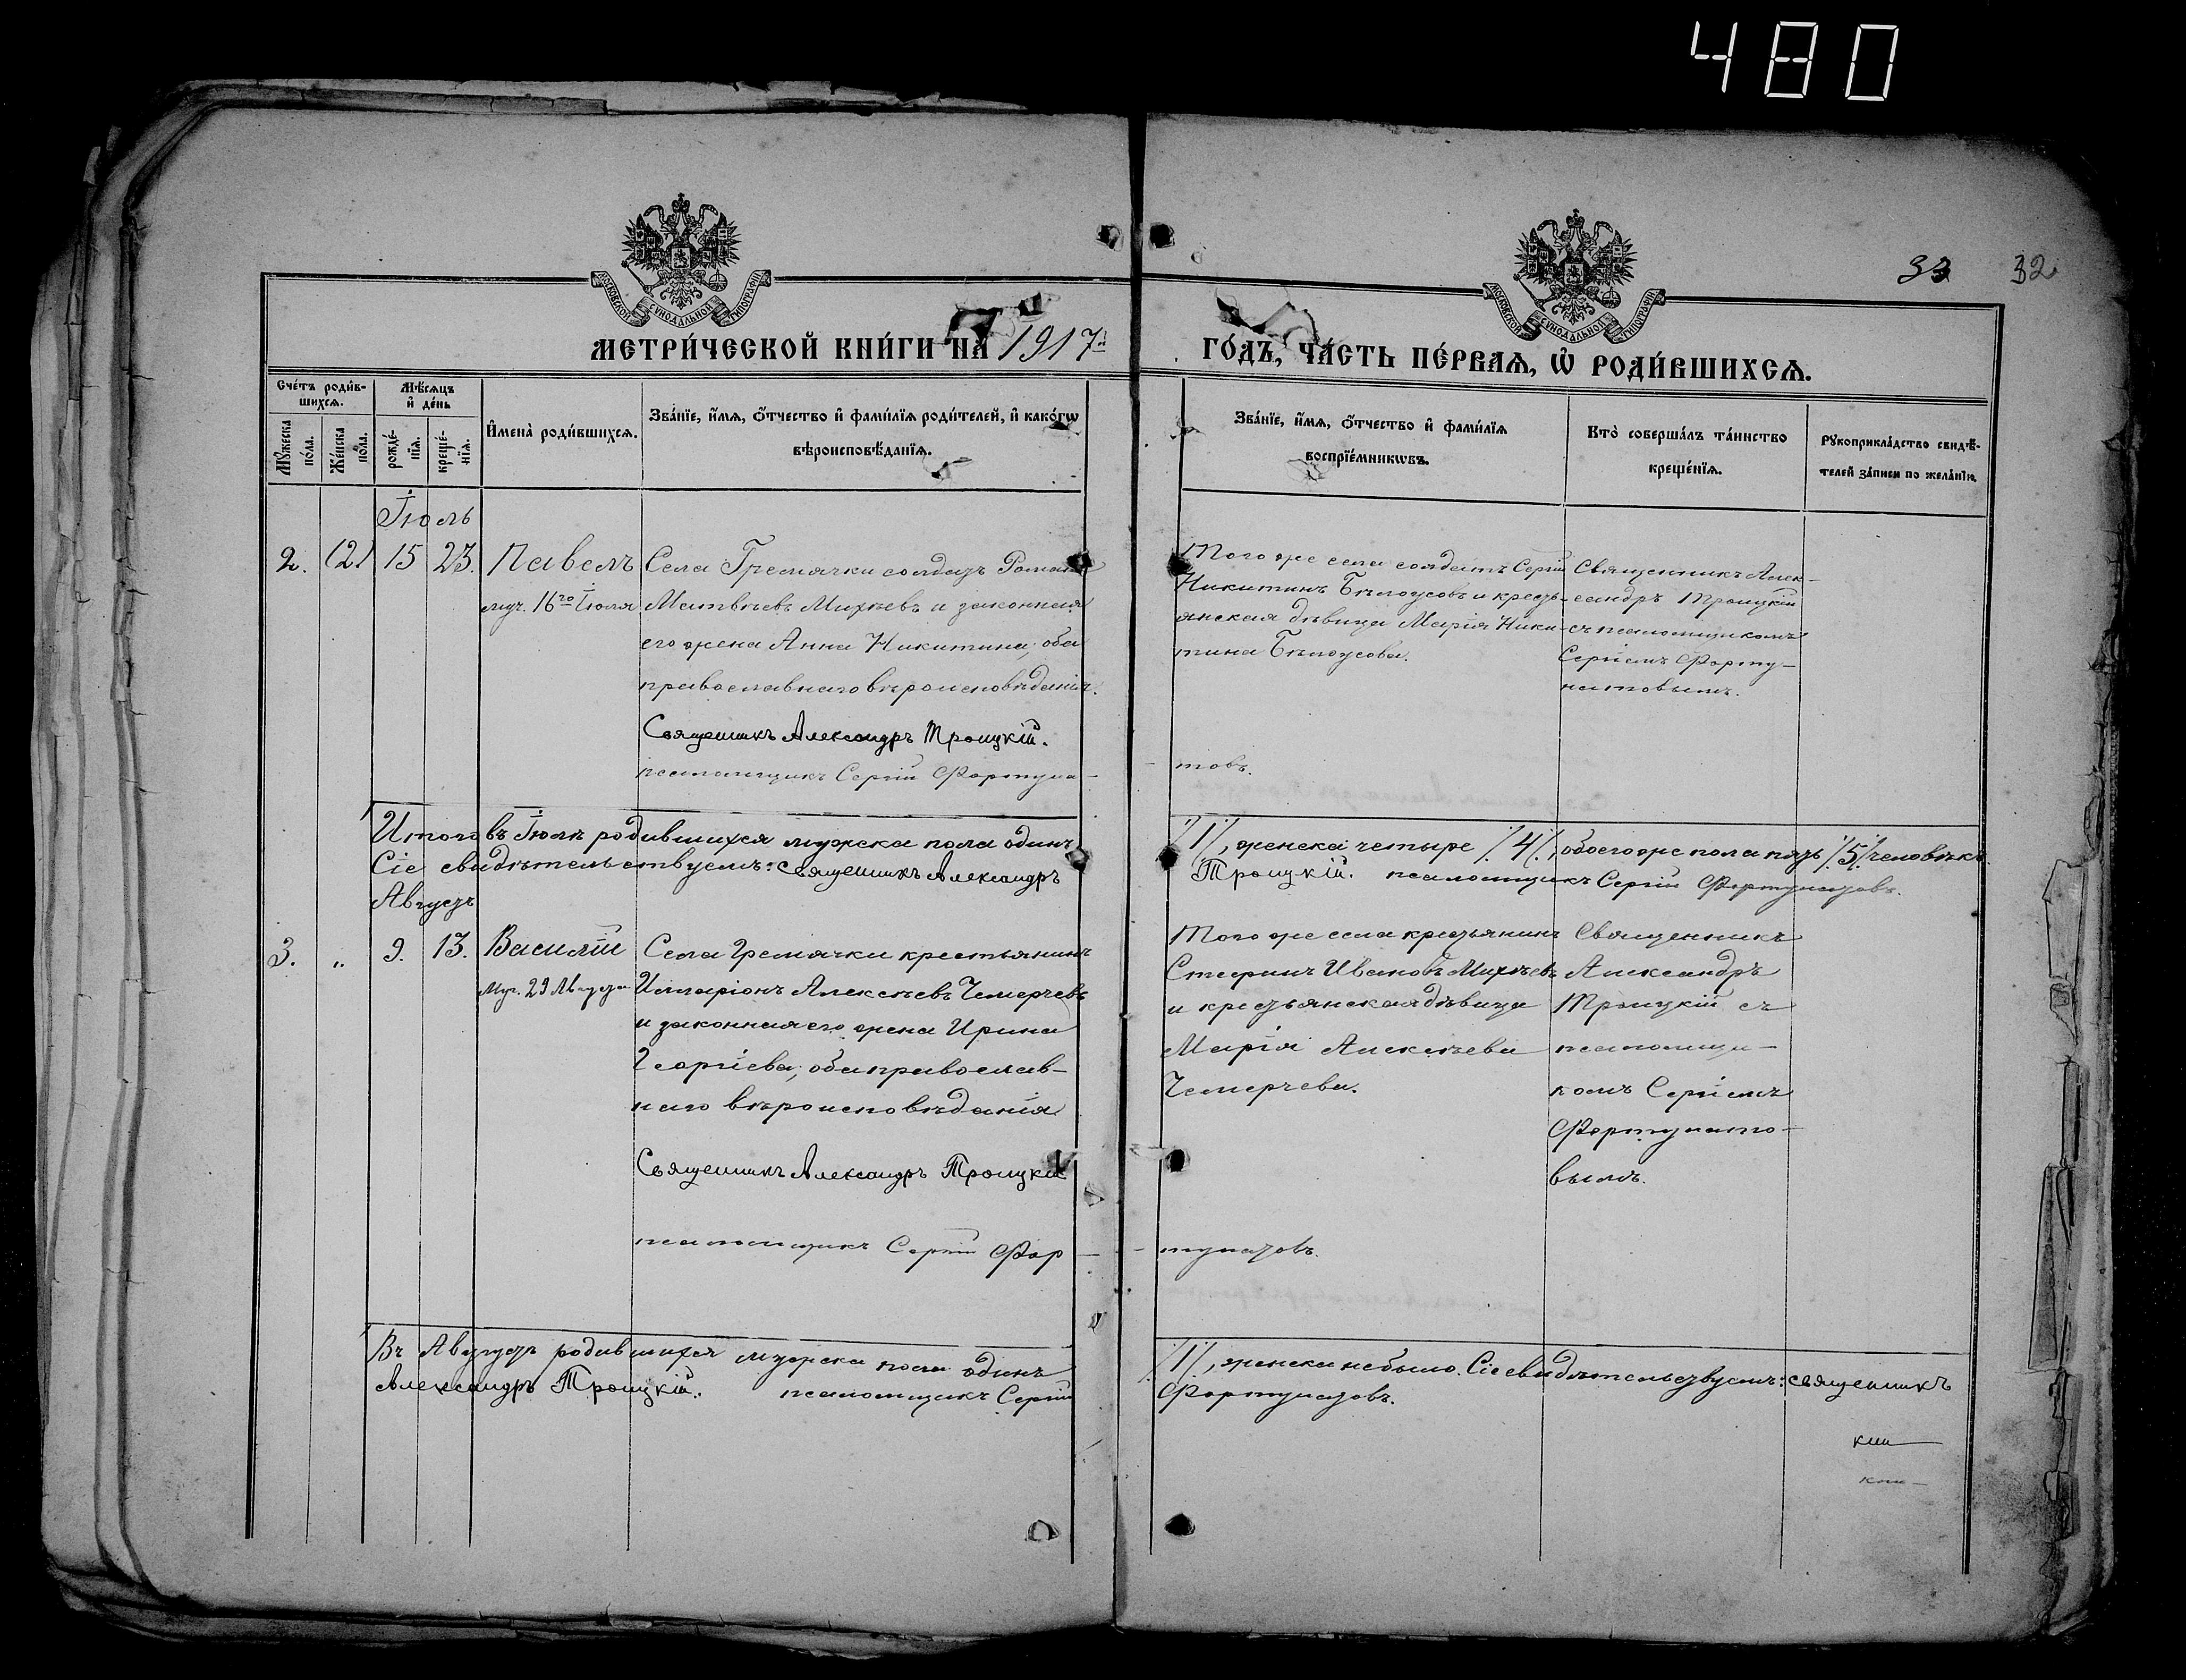 480
МОСКОВСКОЙ СѴНОДАЛЬНОЙ ТИПОГРАФІИ
МОСКОВСКОЙ СѴНОДАЛЬНОЙ ТИПОГРАФІИ
33 32
МЕТРИ́ЧЕСКОЙ КНИ́ГИ НА 1917й
ГО́ДЪ, ЧА́СТЬ ПЕ́РВАѦ, Ѡ РОДИ́ВШИХСѦ.
Сче́тъ роди́в-
шихсѧ.
Мѣ́сѧцъ
и҆ де́нь
Мꙋ́жеска
по́ла.
Же́нска
по́ла.
рожде́-
нїѧ.
креще́-
нїѧ.
И҆мена̀ роди́вшихсѧ.
Зва́нїе, и҆́мѧ, ѻ҆́тчество и҆ фами́лїѧ роди́телей, и҆ како́гѡ
вѣроисповѣ́данїѧ.
Зва́нїе, и҆́мѧ, ѻ҆́тчество и҆ фами́лїѧ
воспрїе́мникѡвъ.
Кто̀ соверша́лъ та́инство
креще́нїѧ.
Рꙋкоприкла́дство свидѣ́-
телей за́писи по жела́нїю.
Іюль
2. (2) 15 23. Павелъ
муч. 16го Іюля
Села Гремячки солдатъ Романъ
Матвѣевъ Михѣевъ и законная
его жена Анна Никитина; оба
православнаго вѣроисповѣданія.
Священникъ Александръ Троицкій.
псаломщикъ Сергій Фортуна-
Того же села солдатъ Сергій
Никитинъ Бѣлоусовъ и кресть-
янская дѣвица Марія Ники-
тина Бѣлоусова.
товъ.
Священникъ Алек-
сандръ Троицкій
съ псаломщикомъ
Сергіемъ Форту-
натовымъ.
Итого въ Іюлѣ родившихся мужска пола одинъ
/1/, женска четыре /4/, обоего же пола пять /5/ человѣкъ.
Сіе свидѣтельствуемъ: священникъ Александръ
Троицкій. псаломщикъ Сергій Фортунатовъ.
Августъ
3. „ 9. 13. Василій
Муч. 29 Августа
Села Гремячки крестьянинъ
Иларіонъ Алексѣевъ Чемерчевъ
и законная его жена Ирина
Георгіева; оба православ-
наго вѣроисповѣданія
Священникъ Александръ Троицкій
псаломщикъ Сергій Фор-
Того же села крестьянинъ
Стефанъ Ивановъ Михѣевъ
и крестьянская дѣвица
Марія Алексѣева
Чемерчева.
тунатовъ.
Священникъ
Александръ
Троицкій съ
псаломщи-
комъ Сергіемъ
Фортунато-
вымъ.
Въ Августѣ родившихся мужска пола одинъ
/1/, женска небыло. Сіе свидѣтельствуемъ: священникъ
Александръ Троицкій. псаломщикъ Сергій
Фортунатовъ.